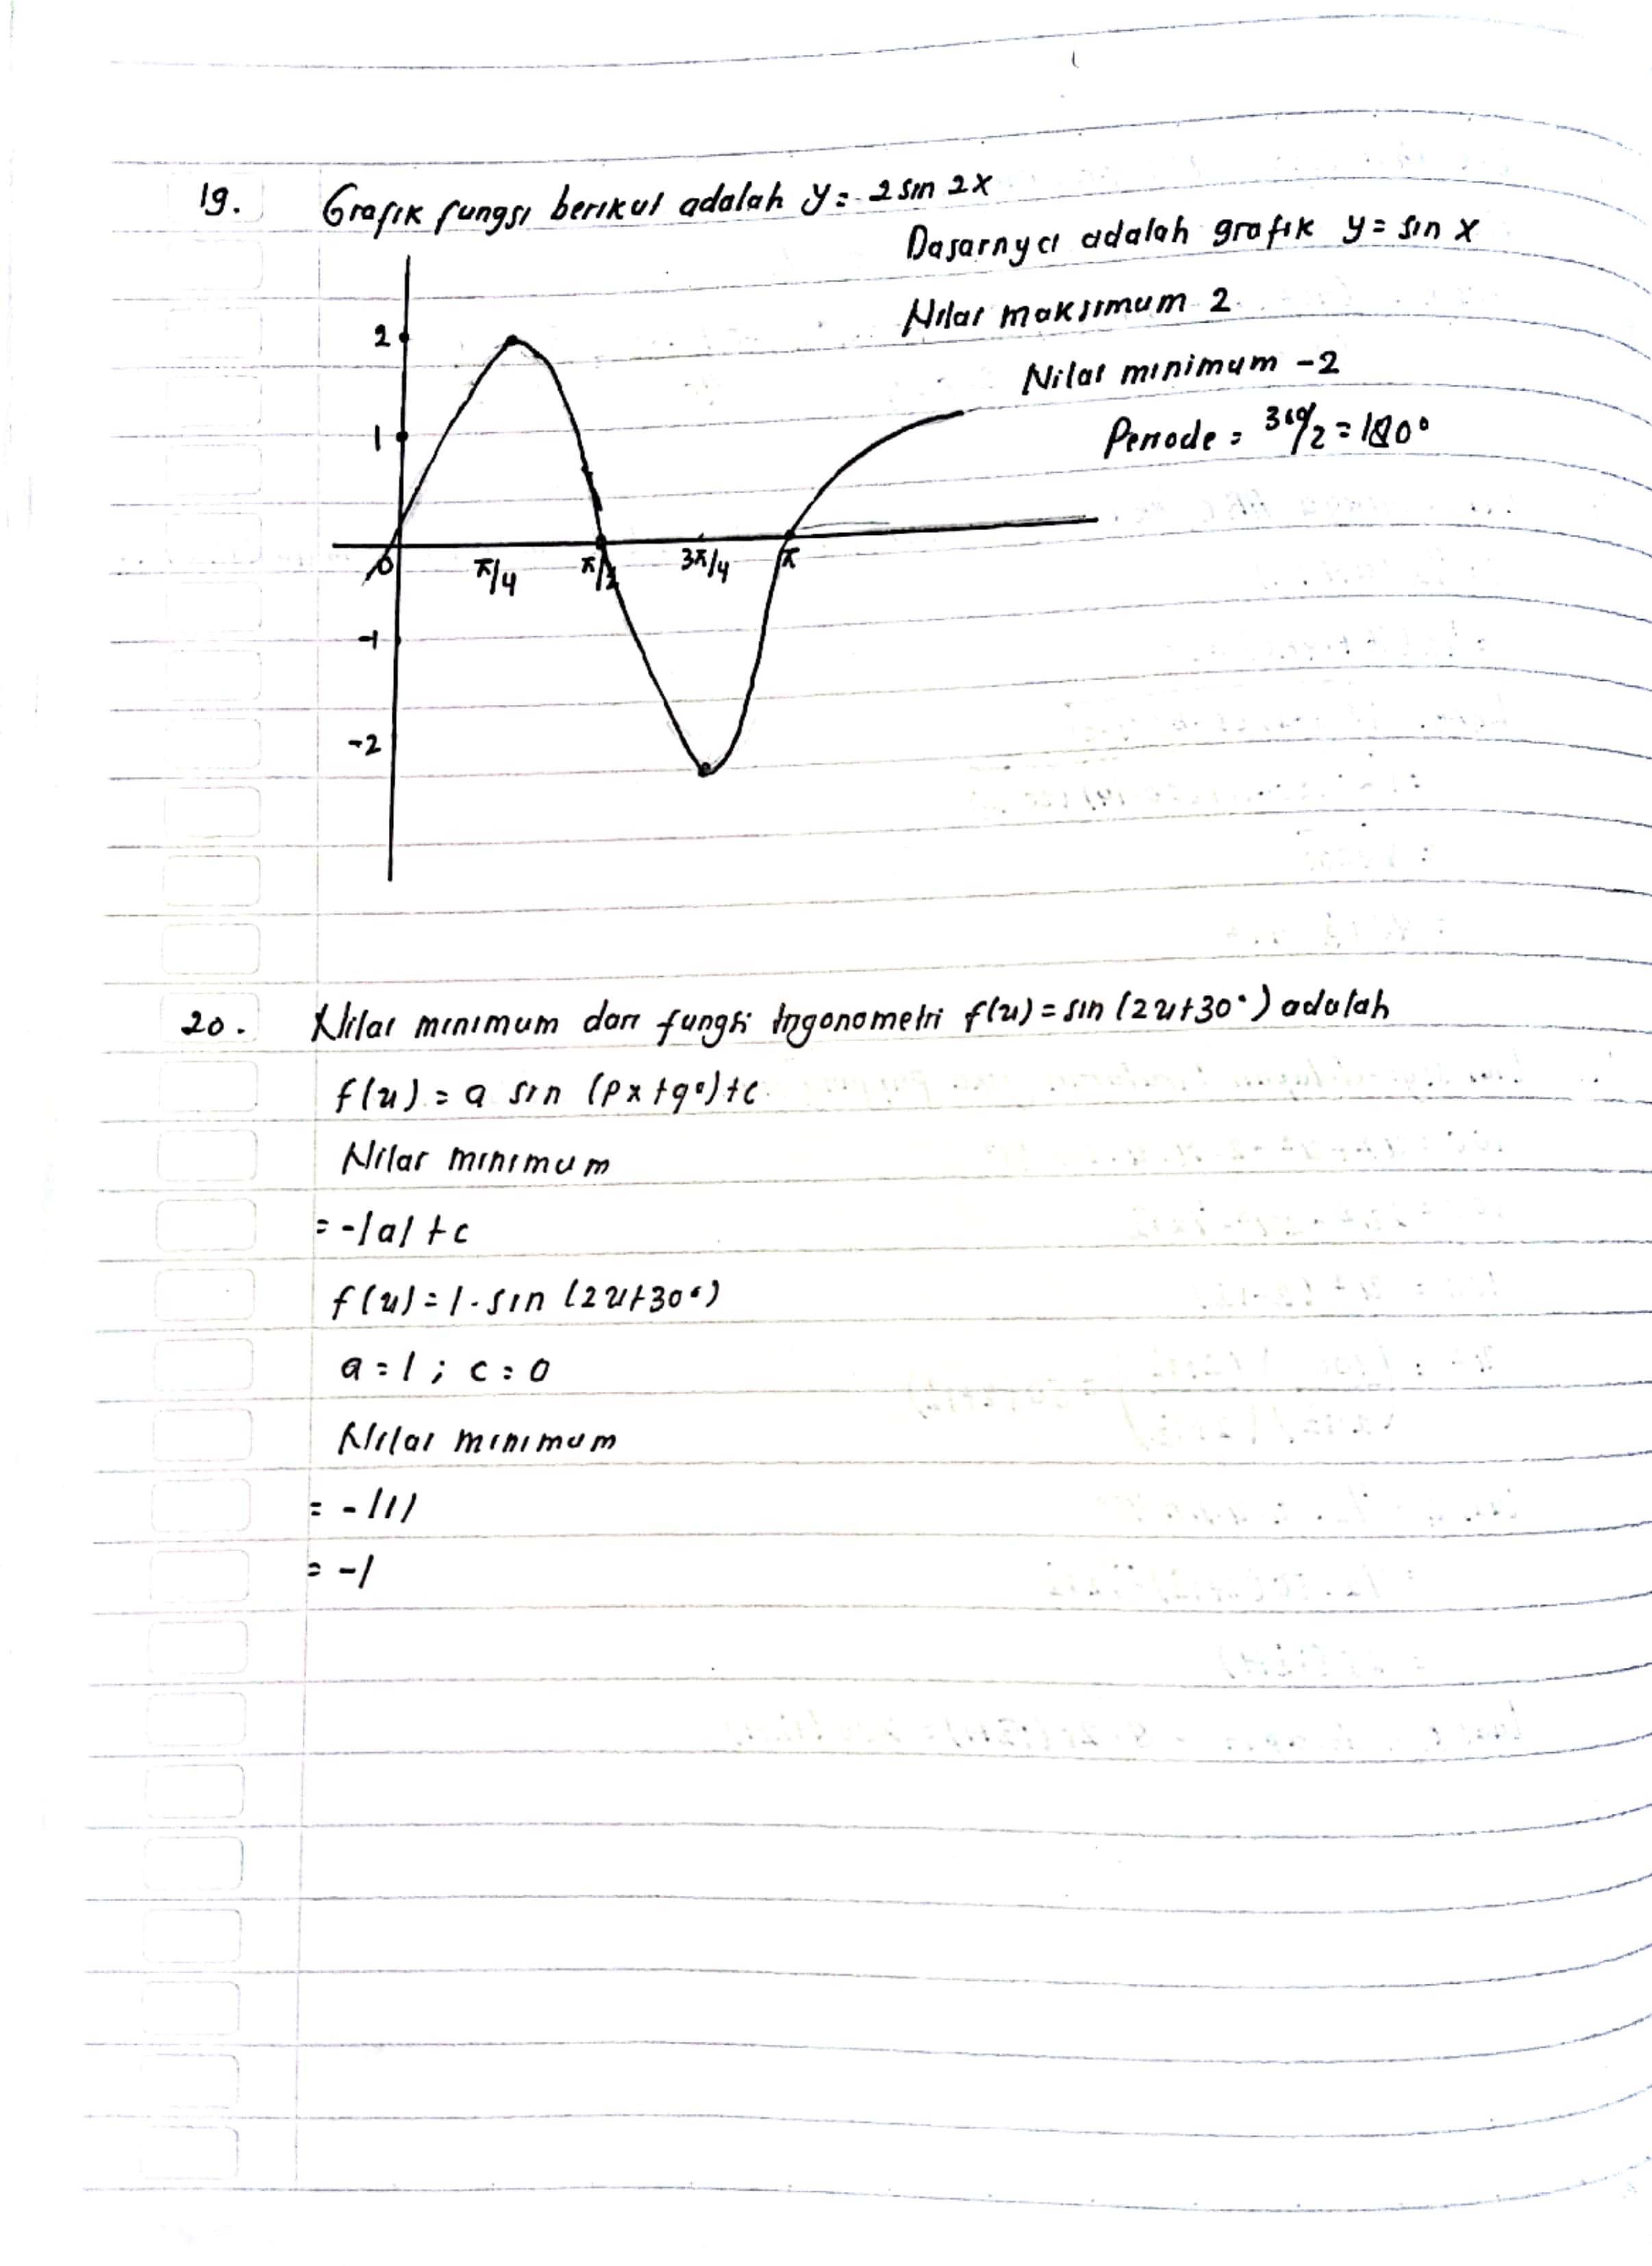 19. Grafik fungsi berikut adalah y = 2 sin 2x
Dasarnya adalah grafik y = sin x
Nilai maksimum 2
Nilai minimum -2
Periode = 360/2 = 180°
2
1
0 π/4 π/2 3π/4 π
-1
-2
20. Nilai minimum dari fungsi trigonometri f(x) = sin (2x+30°) adalah
f(x) = a sin (px + q°) + c
Nilai minimum
= -|a| + c
f(x) = 1. sin (2x+30°)
a = 1 ; c = 0
Nilai minimum
= -|1|
= -1